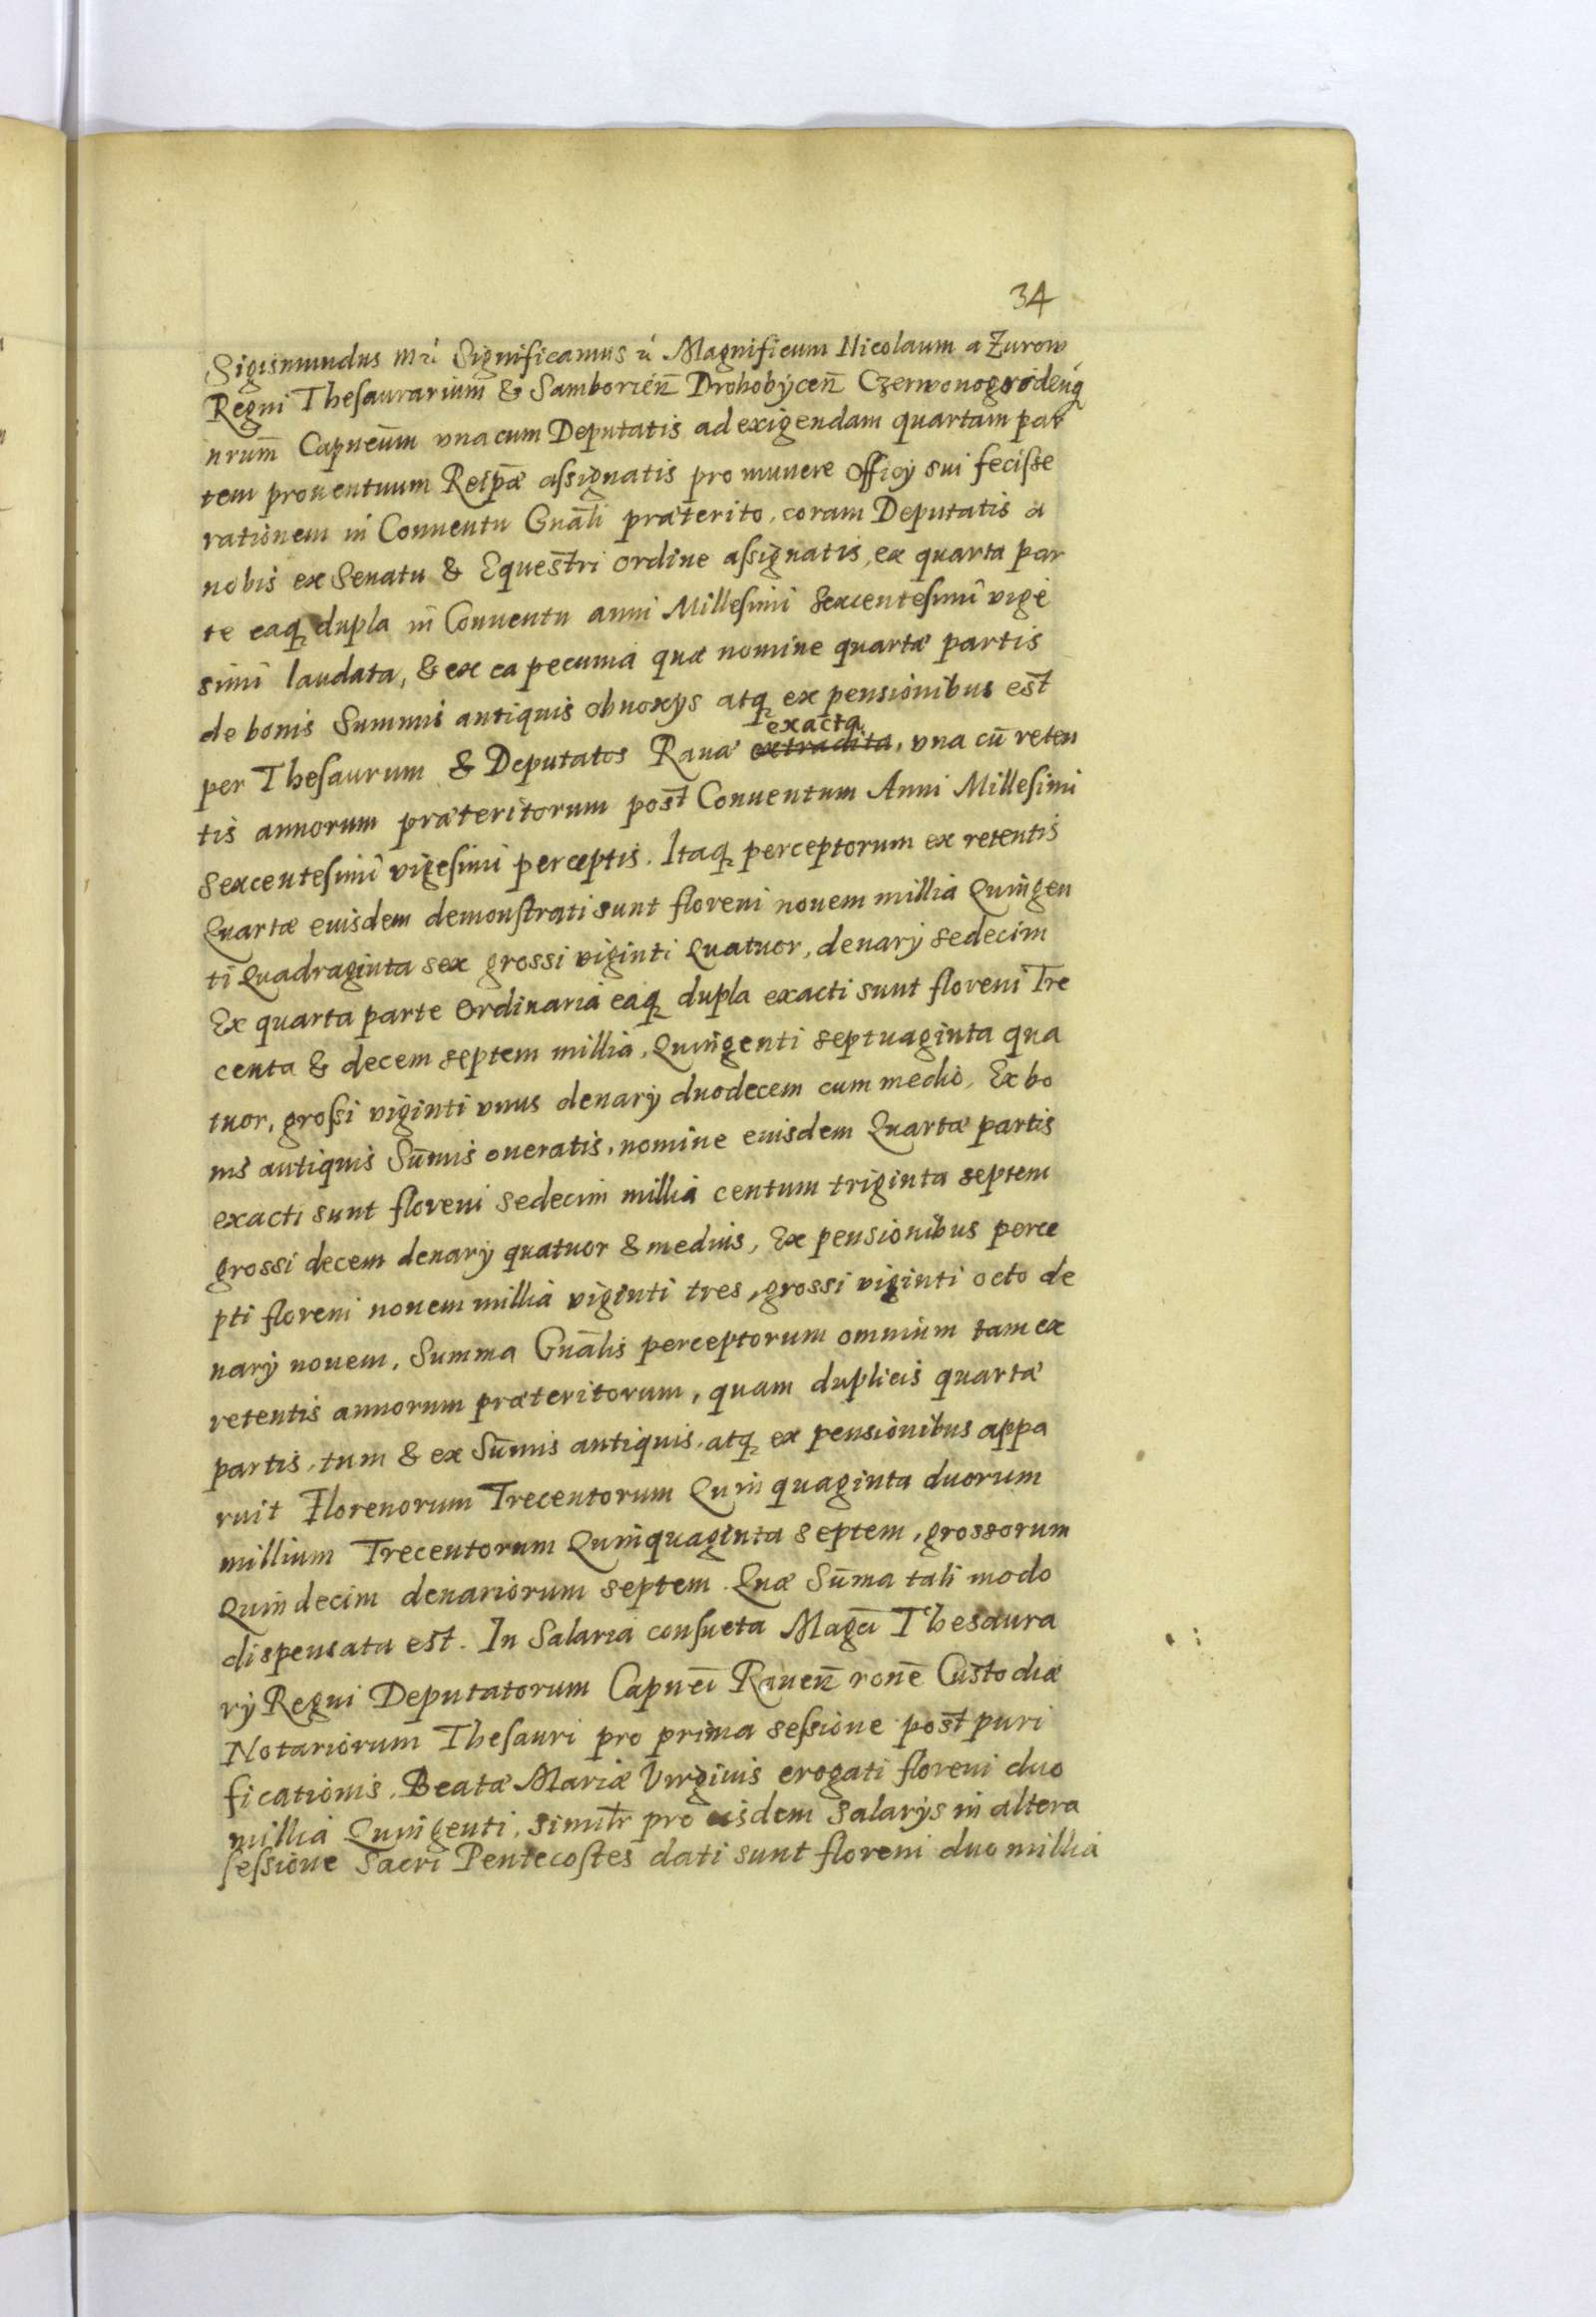 34
Sigismundus Significamus Magnificum Nicolaum a Zurow
Regni Thesaurarium & Samborien̄ Drohobycen̄ Czerwonogrodenq̨
nrum̄ Capneum̄ vna cum Deputatis ad exigendam quartam par
tem prouentuum Reipāe assignatis pro munere Officÿ sui feciste
rationem in Conuentu Gnāli præterito, coram Deputatis a
nobis ex Senatu & Equestri ordine assignatis, ex quarta par
te eaq̨ dupla in Conuentu anni Millesimi Sexcentesimi vige
simi laudata, & ex ea pecunia quæ nomine quartæ partis
de bonis Summis antiquis obnoxÿs atq̨ ex pensionibus est
exacta
per Thesaurum & Deputatos Rauæ extradita, vna cū reten
tis annorum præteritorum post Conuentum Anni Millesimi
Sexcentesimi vigesimi perceptis. Itaq̨ perceptorum ex retentis
Quartæ eiusdem demonstrati sunt floreni nouem millia Quingen
ti Quadraginta sex grossi viginti Quatuor, denarÿ sedecim
Ex quarta parte Ordinaria eaq̨ dupla exacti sunt floreni Tre
centa & decem septem millia, Quingenti septuaginta qua
tuor, grossi viginti vnus denarÿ duodecem cum medio, Ex bo
nis antiquis Sum̄is oneratis, nomine eiusdem Quartæ partis
exacti sunt floreni sedecim millia centum triginta septem
grossi decem denarÿ quatuor & medius, Ex pensionibus perce
pti floreni nouem millia viginti tres, grossi viginti octo de
narÿ nouem. Summa Gnālis perceptorum omnium tam ex
retentis annorum præteritorum, quam duplicis quartæ
partis, tum & ex Sum̄is antiquis, atq̨ ex pensionibus appa
ruit Florenorum Trecentorum Quinquaginta duorum
millium Trecentorum Quinquaginta septem, grossorum
Quindecim denariorum septem. Quæ Sum̄a tali modo
dispensata est. In Salaria consueta Magcī Thesaura
rÿ Regni Deputatorum Capneī Rauen̄ ronē Custodiæ
Notariorum Thesauri pro prima sessione post puri
ficationis, Beatæ Mariæ Virginis erogati floreni duo
millia Quingenti, similr̄ pro eisdem Salarÿs in altera
sessione Sacri Pentecostes dati sunt floreni duo millia